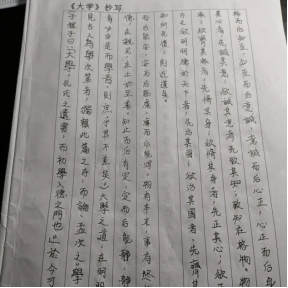 《大学》抄写
子程子曰:「大學,孔氏之遺書,而初學入德之門也」於今可
見古人為學次第者,獨賴此篇之存,而論、孟次之。學
者必由是而學焉,則庶乎其不差矣。」大學之道,在明明
德,在親民,在止於至善。知止而后有定,定而后能靜,靜
而后能安,安而后能慮,慮而后能得。物有本末,事有終始
知所先後,則近道矣。
古之欲明明德於天下者,先治其國;欲治其國者,先齊其
家;欲齊其家者,先修其身;欲修其身者,先正其心;欲正
其心者,先誠其意;欲誠其意者,先致其知;致知在格物。物
格而后知至,知至而后意誠,意誠而后心正,心正而后身